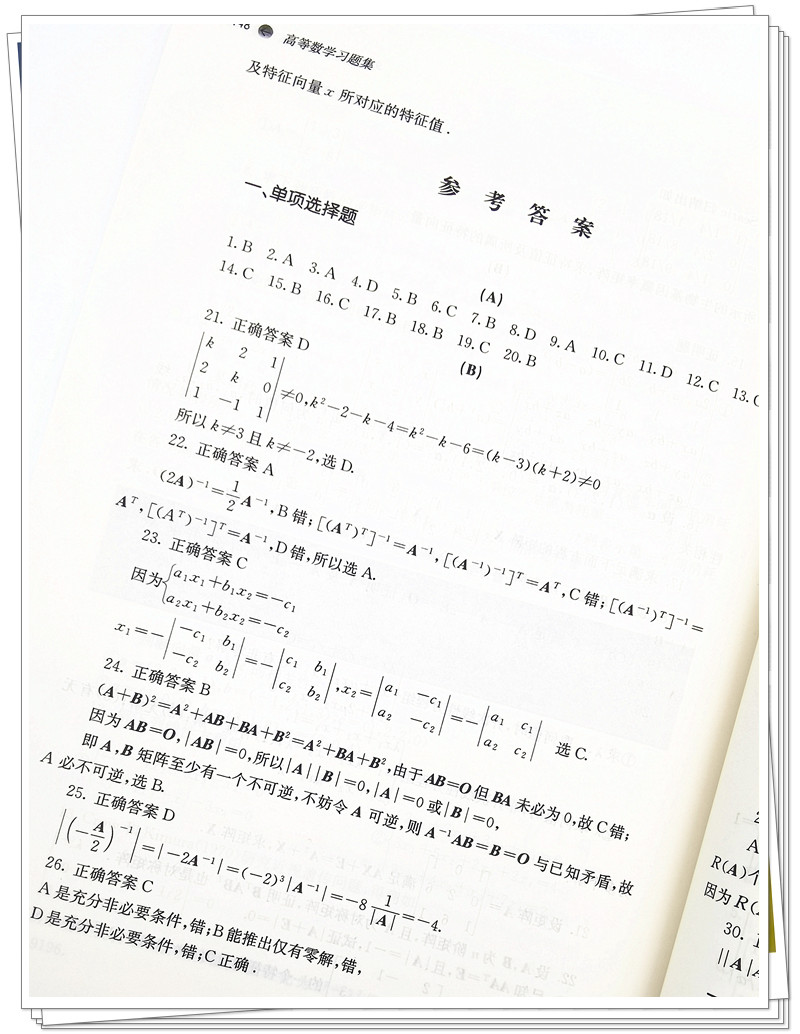 高等数学习题集
及特征向量 x 所对应的特征值．
参 考 答 案
一、单项选择题
(A)
1. B 2. A 3. A 4. D 5. B 6. C 7. B 8. D 9. A 10. C 11. D 12. C 13. C
14. C 15. B 16. C 17. B 18. B 19. C 20. B
(B)
21. 正确答案 D
|k 2 1|
|2 k 0| ≠0, k²−2−k−4=k²−k−6=(k−3)(k+2)≠0
|1 −1 1|
所以 k≠3 且 k≠−2,选 D.
22. 正确答案 A
(2A)⁻¹=1/2 A⁻¹,B 错; [(Aᵀ)ᵀ]⁻¹=A⁻¹, [(A⁻¹)⁻¹]ᵀ=Aᵀ,C 错; [(A⁻¹)ᵀ]⁻¹=
Aᵀ, [(Aᵀ)⁻¹]ᵀ=A⁻¹,D 错,所以选 A.
23. 正确答案 C
因为{a₁x₁+b₁x₂=−c₁
a₂x₁+b₂x₂=−c₂
x₁=−|−c₁ b₁|=−|c₁ b₁|,x₂=|a₁ −c₁|=−|a₁ c₁| 选 C.
|−c₂ b₂| |c₂ b₂| |a₂ −c₂| |a₂ c₂|
24. 正确答案 B
(A+B)²=A²+AB+BA+B²=A²+BA+B²,由于 AB=O 但 BA 未必为 0,故 C 错;
因为 AB=O, |AB|=0,所以|A||B|=0, |A|=0 或|B|=0,
即 A,B 矩阵至少有一个不可逆,不妨令 A 可逆,则 A⁻¹AB=B=O 与已知矛盾,故
A 必不可逆,选 B.
25. 正确答案 D
|(−A/2)⁻¹|=|−2A⁻¹|=(−2)³|A⁻¹|=−8 1/|A|=−4.
26. 正确答案 C
A 是充分非必要条件,错;B 能推出仅有零解,错,
D 是充分非必要条件,错;C 正确．
R(A)
因为 R(
30.